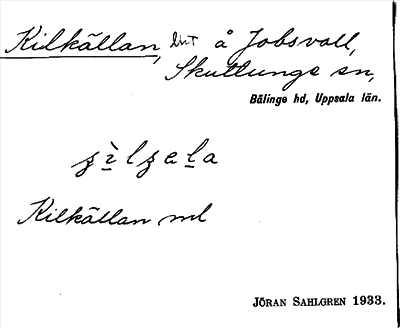 Kilkällan, lint å Jobsvall,
Skuttunge sn,
Bälinge hd, Uppsala län.
Kilkällan ml
JÖRAN SAHLGREN 1933.